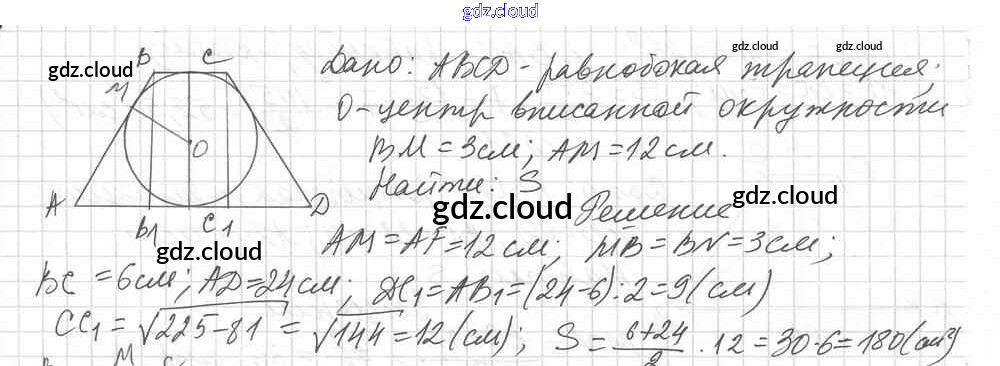 gdz.cloud
gdz.cloud
gdz.cloud
B C
gdz.cloud
M
O
A D
B1 C1
gdz.cloud
Дано: ABCD - равнобокая трапеция.
O - центр вписанной окружности
BM = 3 см; AM = 12 см.
Найти: S
gdz.cloud
gdz.cloud
Решение
AM = AF = 12 см; MB = BN = 3 см;
BC = 6 см; AD = 24 см; DC1 = AB1 = (24-6):2 = 9 (см)
CC1 = √225-81 = √144 = 12 (см); S = 6+24/2 · 12 = 30·6 = 180 (см²)
M